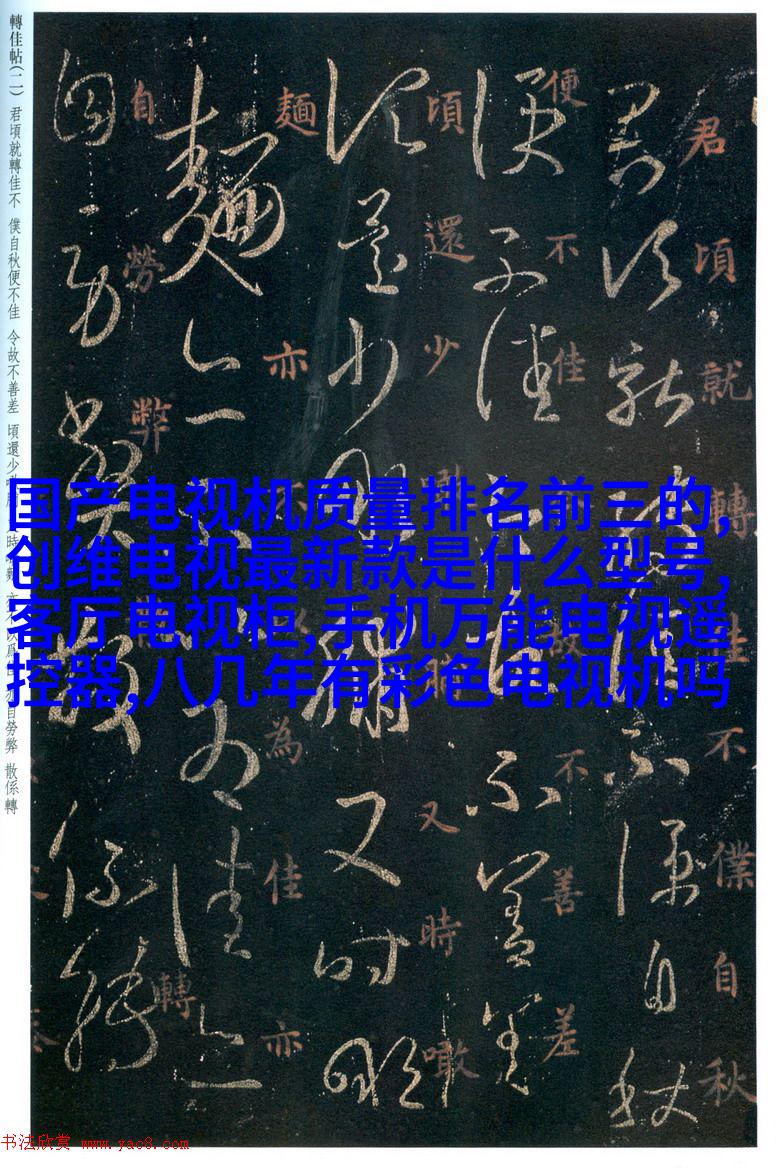 轉佳帖(二) 君頃就轉佳不 僕自秋便不佳 令故不善差 頃還少噉 時 自勞弊 散係轉
君頃就轉佳不僕自秋
便不佳 故不善差
頃還少噉 又時噉
麵亦不 為佳亦
自勞弊 轉
国产电视机质量排名前三的,
创维电视最新款是什么型号,
客厅电视柜,手机万能电视遥
控器,八几年有彩色电视机吗
书法欣赏 www.yac8.com